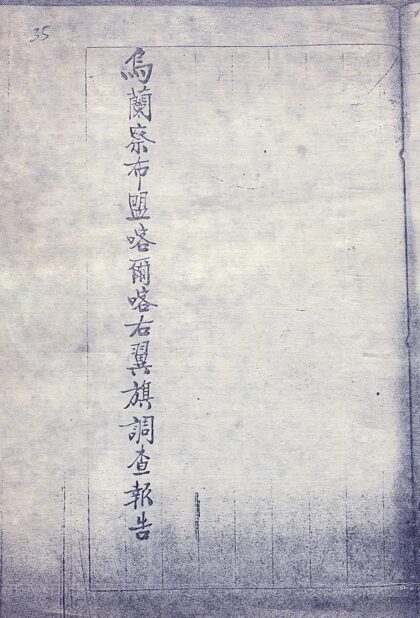 35
烏蘭察布盟喀爾喀右翼旗調查報告